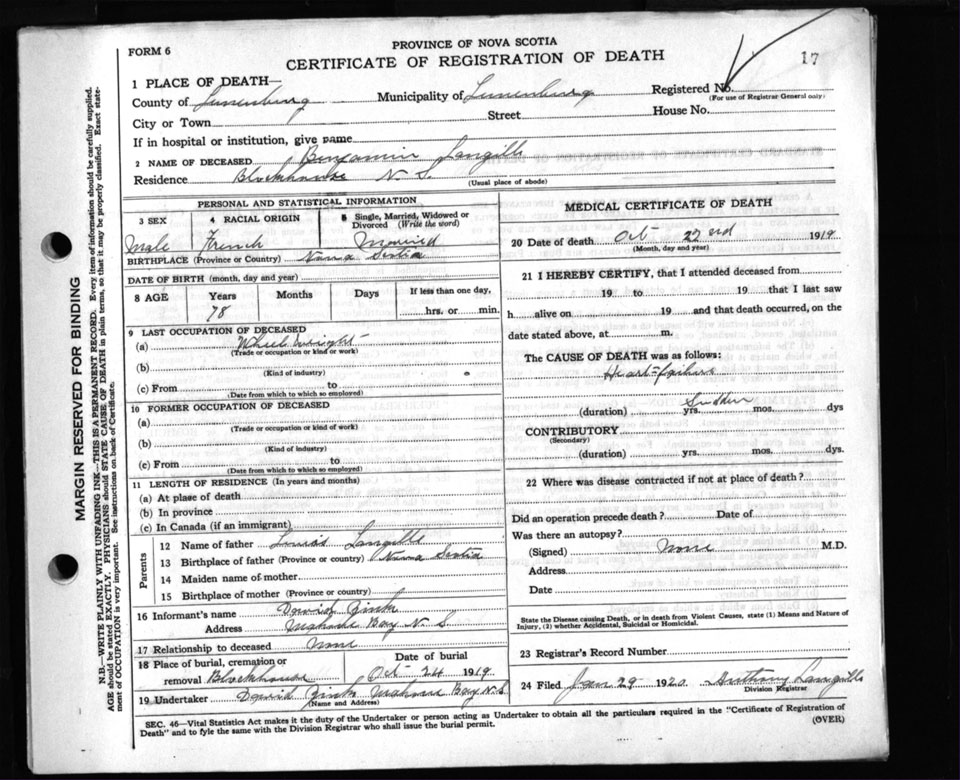 PROVINCE OF NOVA SCOTIA
FORM 6
CERTIFICATE OF REGISTRATION OF DEATH
17
1 PLACE OF DEATH—
County of Lunenburg Municipality of Lunenburg Registered No.
(For use of Registrar General only)
City or Town Street House No.
If in hospital or institution, give name
2 NAME OF DECEASED Benjamin Langille
Residence Blockhouse N S.
(Usual place of abode)
PERSONAL AND STATISTICAL INFORMATION
3 SEX 4 RACIAL ORIGIN 5 Single, Married, Widowed or Divorced (Write the word)
Male French Married
BIRTHPLACE (Province or Country) Nova Scotia
DATE OF BIRTH (month, day and year)
8 AGE Years Months Days If less than one day,
78 hrs. or min.
9 LAST OCCUPATION OF DECEASED
(a) Wheel wright
(Trade or occupation or kind or work)
(b)
(Kind of industry)
(c) From to
(Date from which to which so employed)
10 FORMER OCCUPATION OF DECEASED
(a)
(Trade or occupation or kind of work)
(b)
(Kind of industry)
(c) From to
(Date from which to which so employed)
11 LENGTH OF RESIDENCE (In years and months)
(a) At place of death
(b) In province
(c) In Canada (if an immigrant)
Parents
12 Name of father Langille
13 Birthplace of father (Province or country) Nova Scotia
14 Maiden name of mother
15 Birthplace of mother (Province or country)
16 Informant's name David Zink
Address Mahone Bay N. S.
17 Relationship to deceased None
18 Place of burial, cremation or removal Blockhouse Date of burial Oct 24 1919
19 Undertaker David Zink Mahone Bay N.S
(Name and Address)
MEDICAL CERTIFICATE OF DEATH
20 Date of death Oct 23rd 1919
(Month, day and year)
21 I HEREBY CERTIFY, that I attended deceased from
19 to 19 that I last saw
h alive on 19 and that death occurred, on the
date stated above, at m.
The CAUSE OF DEATH was as follows:
Heart-failure
Sudden
(duration) yrs. mos. dys
CONTRIBUTORY
(Secondary)
(duration) yrs. mos. dys.
22 Where was disease contracted if not at place of death?
Did an operation precede death? Date of
Was there an autopsy?
(Signed) None M.D.
Address
Date
State the Disease causing Death, or in death from Violent Causes, state (1) Means and Nature of Injury, (2) whether Accidental, Suicidal or Homicidal.
23 Registrar's Record Number
24 Filed Jan 29 1920 Anthony Langille
Division Registrar
SEC. 46—Vital Statistics Act makes it the duty of the Undertaker or person acting as Undertaker to obtain all the particulars required in the "Certificate of Registration of
Death" and to fyle the same with the Division Registrar who shall issue the burial permit.
(OVER)
MARGIN RESERVED FOR BINDING
N.B.—WRITE PLAINLY WITH UNFADING INK—THIS IS A PERMANENT RECORD. Every item of information should be carefully supplied.
AGE should be stated EXACTLY. PHYSICIANS should STATE CAUSE OF DEATH in plain terms, so that it may be properly classified. Exact state-
ment of OCCUPATION is very important. See instructions on back of Certificate.